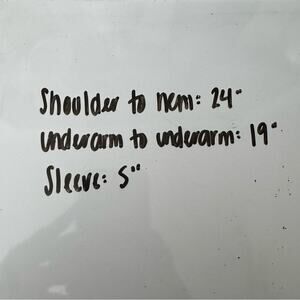 Shoulder to hem: 24"
underarm to underarm: 19"
Sleeve: 5"